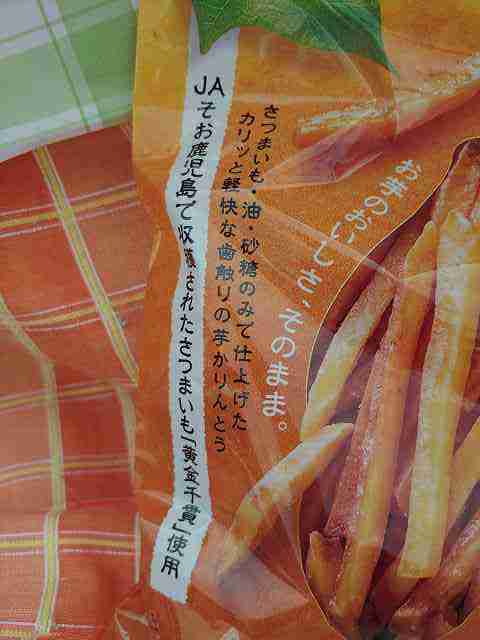 お芋のおいしさ、そのまま。
さつまいも・油・砂糖のみで仕上げた
カリッと軽快な歯触りの芋かりんとう
JAそお鹿児島で収穫されたさつまいも「黄金千貫」使用